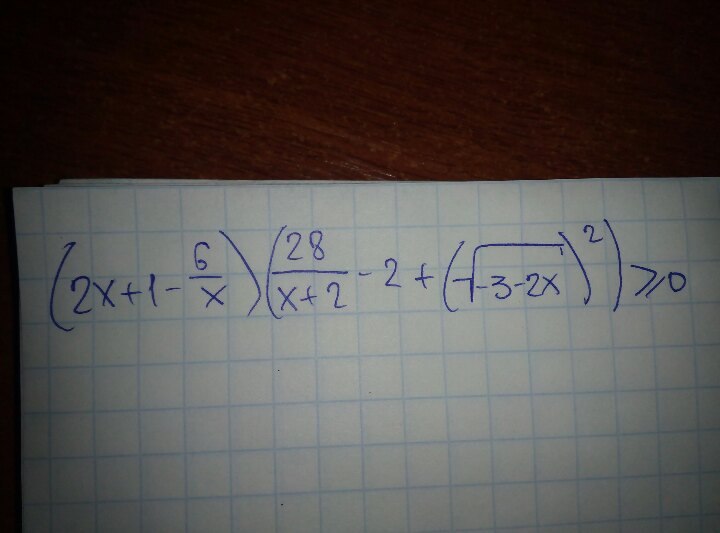 (2x+1-6/x)(28/(x+2)-2+(√(-3-2x))²)≥0